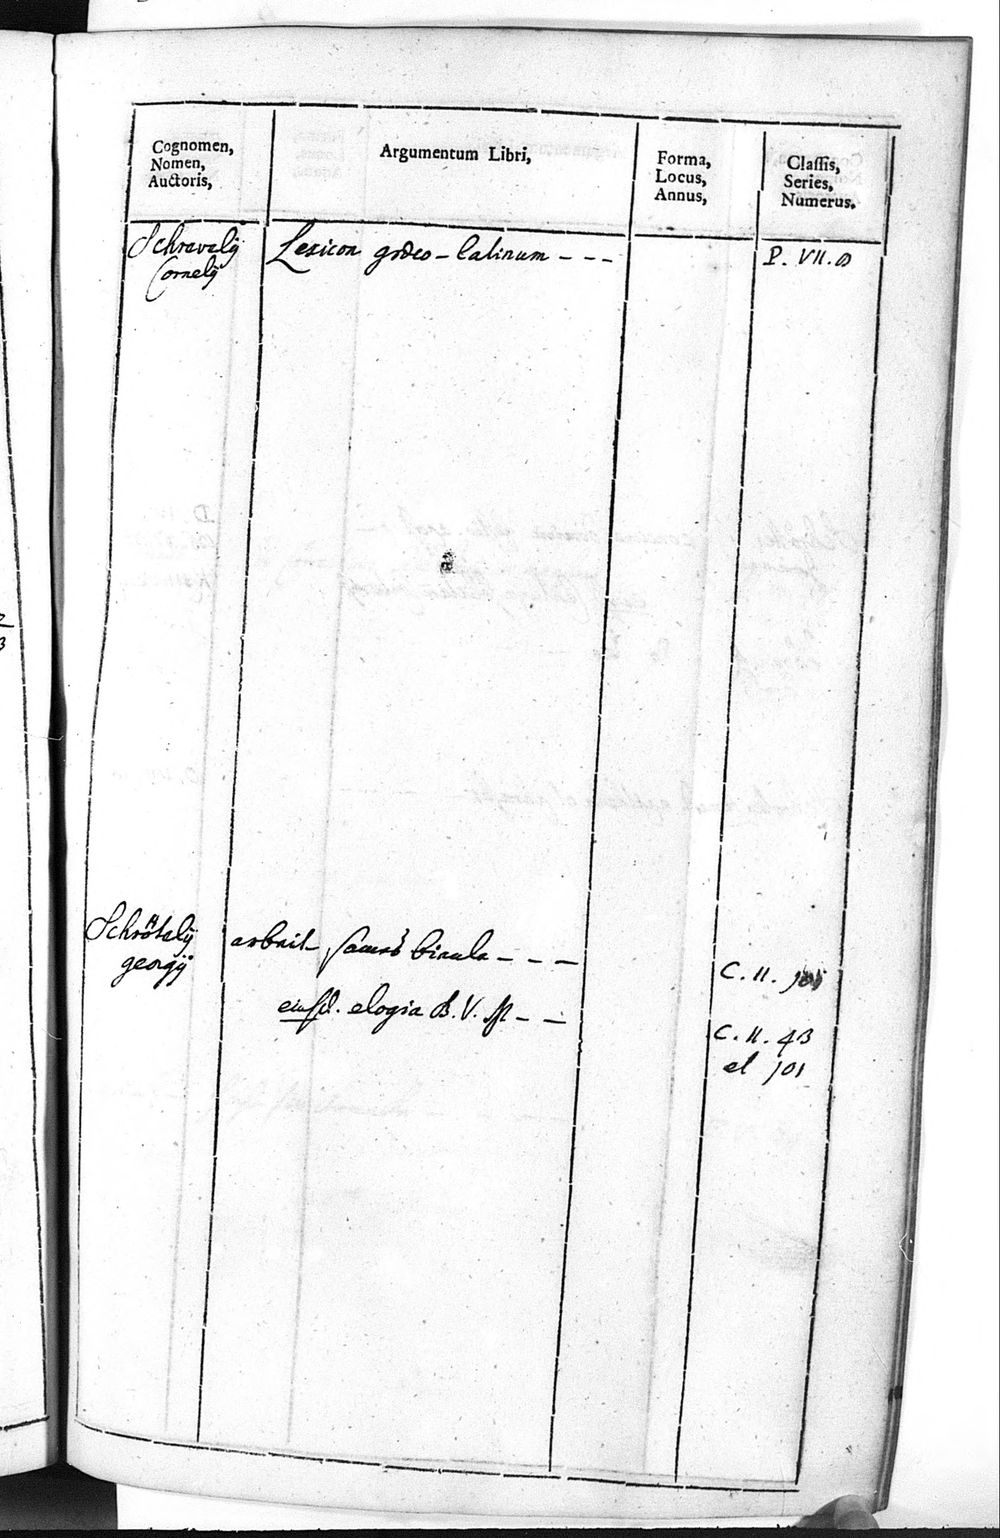 Cognomen,
Nomen,
Auctoris,
Argumentum Libri,
Forma,
Locus,
Annus,
Classis,
Series,
Numerus.
Schravelÿ
Cornelÿ
Lexicon græco-latinum - - -
P. VII. 8
Schrötelÿ
georgÿ
- - -
C. II. 101
eiusd. elogia B. V. M - -
C. II. 43
et 101